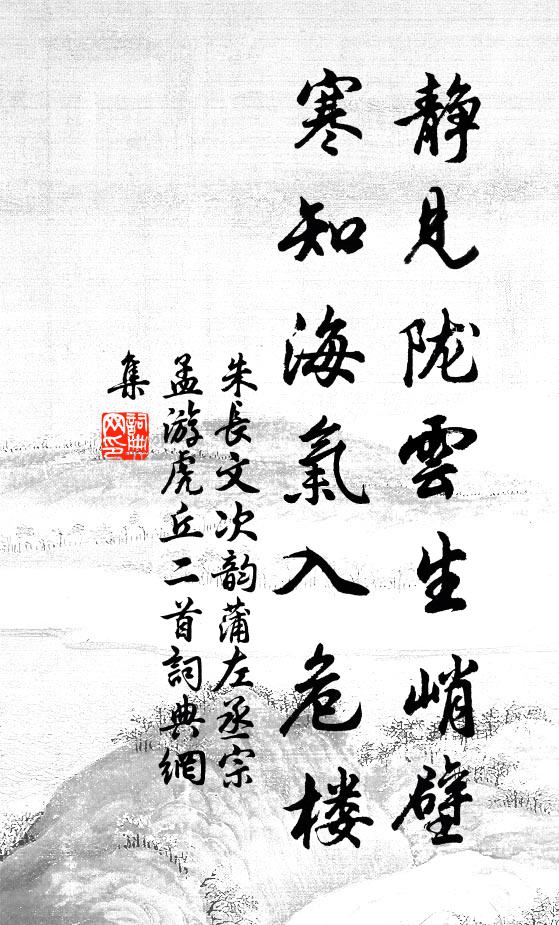 静見陇雲生峭壁
寒知海氣入危楼
朱長文次韵蒲左丞宗
孟游虎丘二首詞典網
集
詞典
网印